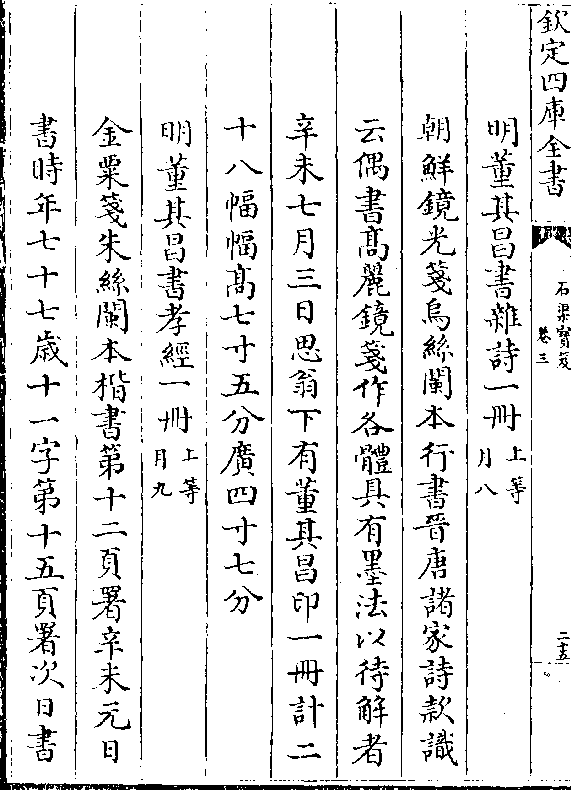 欽定四庫全書
石渠寶笈
卷三
二十五
明董其昌書雜詩一冊 上等
月八
朝鮮鏡光箋烏絲闌本行書晉唐諸家詩款識
云偶書髙麗鏡箋作各體具有墨法以待解者
辛未七月三日思翁下有董其昌印一冊計二
十八幅幅髙七寸五分廣四寸七分
明董其昌書孝經一冊 上等
月九
金粟箋朱絲闌本楷書第十二頁署辛未元日
書時年七十七歲十一字第十五頁署次日書